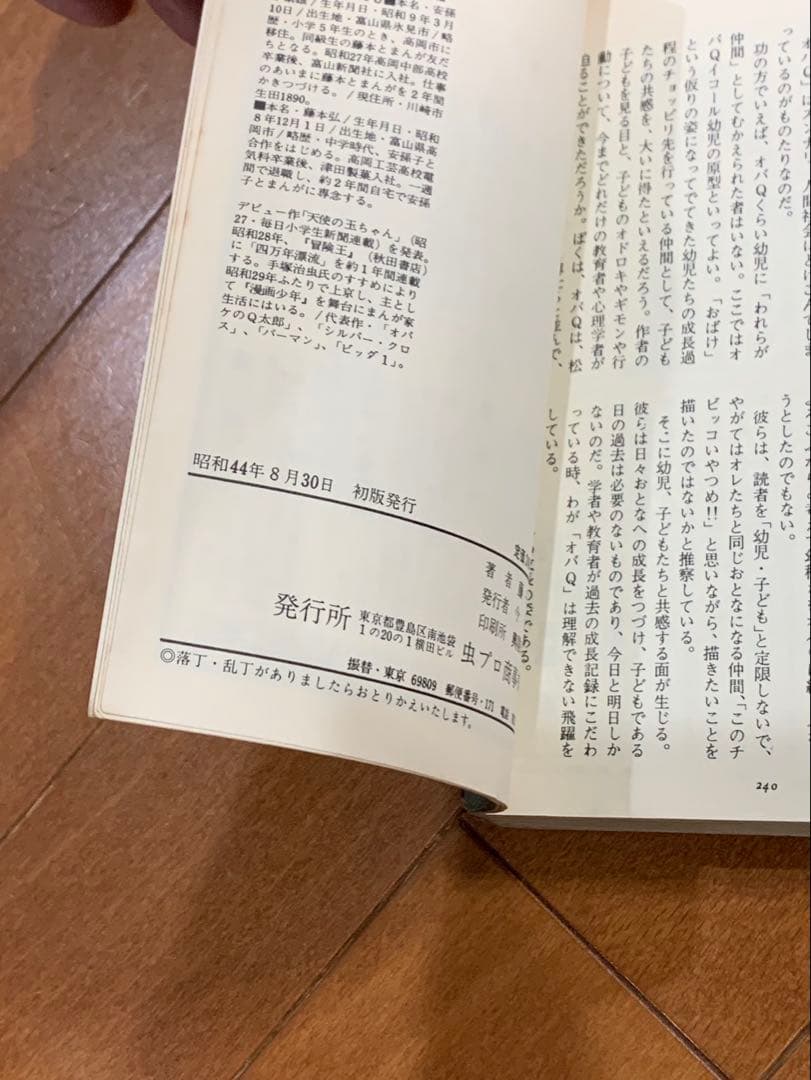 っているのがものたりなのだ。
功の方でいえば、オバQくらい幼児に「われらが
仲間」としてむかえられた者はいない。ここではオ
バQイコール幼児の原型といってよい。「おばけ」
という仮りの姿になってでてきた幼児たちの成長過
程のチョッピリ先を行っている仲間として、子ども
たちの共感を、大いに得たといえるだろう。作者の
子どもを見る目と、子どものオドロキやギモンや行
動について、今までどれだけの教育者や心理学者が
迫ることができただろうか。ぼくは、オバQは、松
うとしたのでもない。
彼らは、読者を「幼児・子ども」と定限しないで、
やがてはオレたちと同じおとなになる仲間、「このチ
ビッコいやつめ!!」と思いながら、描きたいことを
描いたのではないかと推察している。
そこに幼児、子どもたちと共感する面が生じる。
彼らは日々おとなへの成長をつづけ、子どもである
日の過去は必要のないものであり、今日と明日しか
ないのだ。学者や教育者が過去の成長記録にこだわ
っている時、わが「オバQ」は理解できない飛躍を
している。
240
■本名・安孫
/生年月日・昭和9年3月
10日/出生地・富山県氷見市/略
歴・小学5年生のとき、高岡市に
移住。同級生の藤本とまんが友だ
ちとなる。昭和27年高岡中部高校
卒業後、富山新聞社に入社。仕事
のあいまに藤本とまんがを2年間
かきつづける。/現住所・川崎市
生田1890。
■本名・藤本弘/生年月日・昭和
8年12月1日/出生地・富山県高
岡市/略歴・中学時代、安孫子と
合作をはじめる。高岡工芸高校電
気科卒業後、津田製菓入社。一週
間で退職し、約2年間自宅で安孫
子とまんがに専念する。
デビュー作「天使の玉ちゃん」(昭
27・毎日小学生新聞連載)を発表。
昭和28年、『冒険王』(秋田書店)
に「四万年漂流」を約1年間連載
する。手塚治虫氏のすすめにより
昭和29年ふたりで上京し、主とし
て『漫画少年』を舞台にまんが家
生活にはいる。/代表作・「オバ
ケのQ太郎」、「シルバー・クロ
ス」、「パーマン」、「ビッグ1」。
昭和44年8月30日 初版発行
定価
著者
発行者
印刷所
発行所 東京都豊島区南池袋
1の20の1横田ビル
虫プロ商事
振替・東京 69809 郵便番号・171 電話
◎落丁・乱丁がありましたらおとりかえいたします。